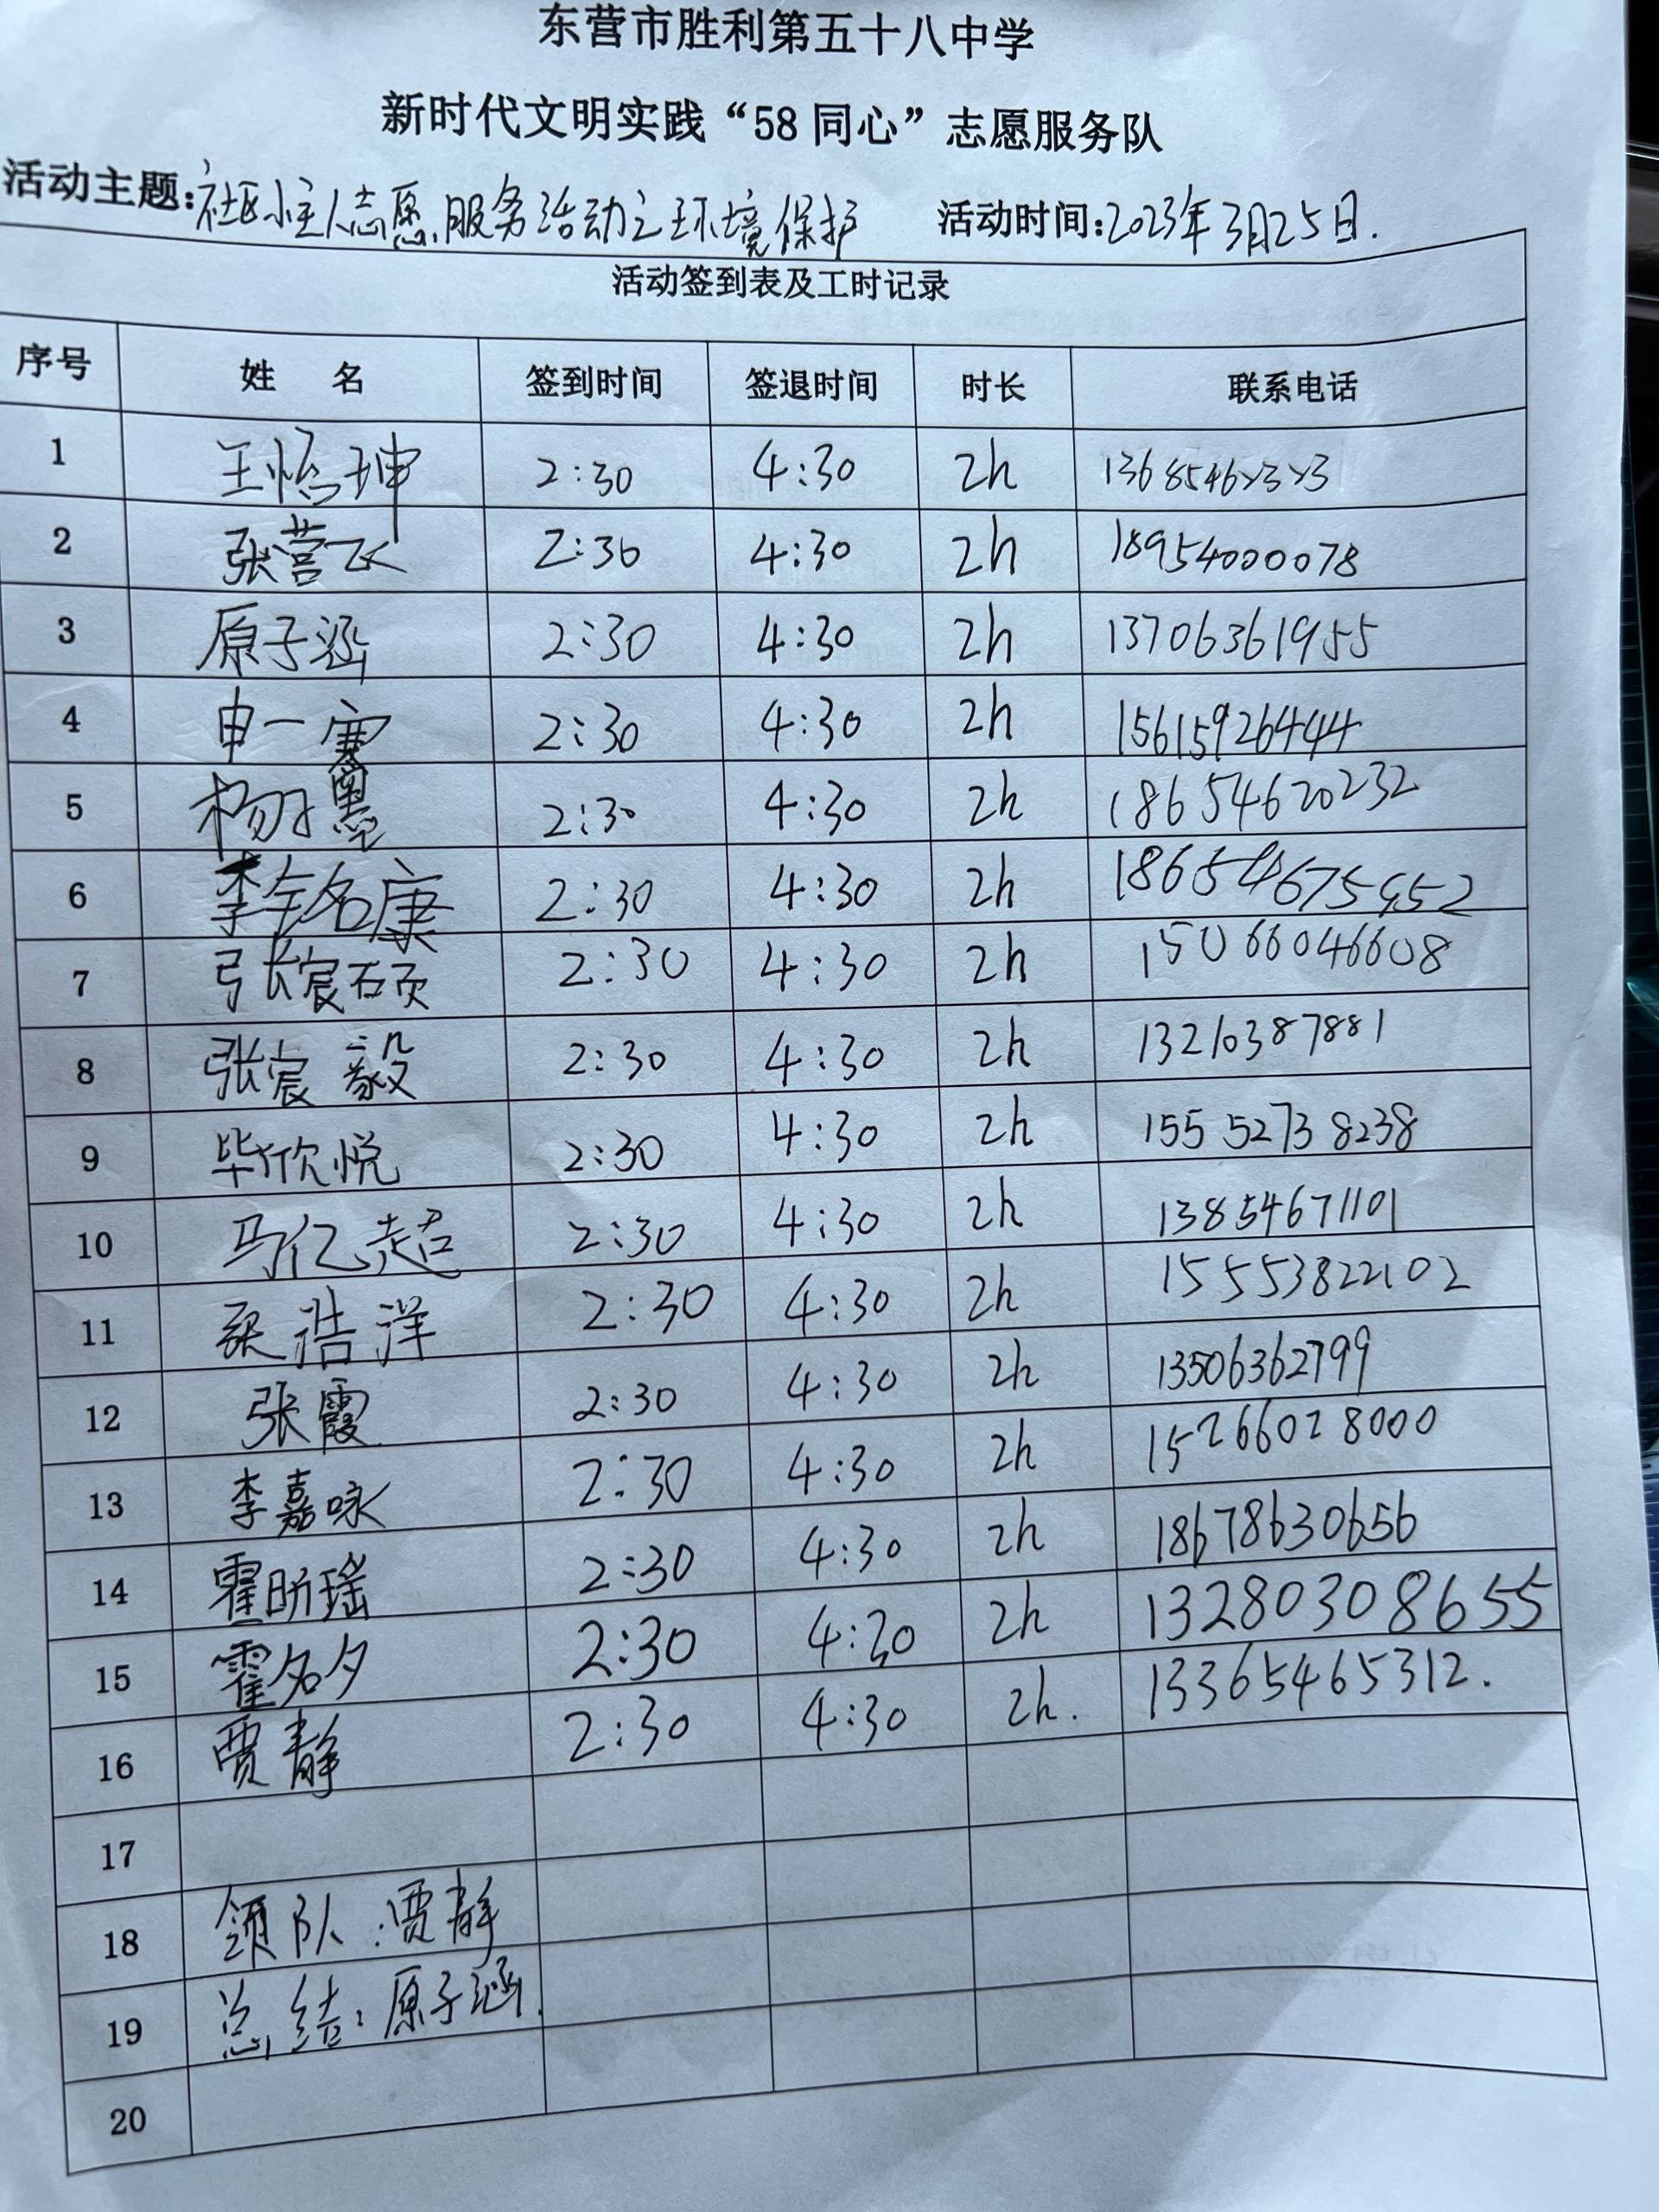 东营市胜利第五十八中学
新时代文明实践“58 同心”志愿服务队
活动主题:社区小主人志愿服务活动之环境保护 活动时间:2023年3月25日.
活动签到表及工时记录
序号 姓 名 签到时间 签退时间 时长 联系电话
1 王怡珅 2:30 4:30 2h
2 张营飞 2:30 4:30 2h 18954000078
3 原子涵 2:30 4:30 2h 13706361955
4 申一 2:30 4:30 2h 15615926444
5 杨子墨 2:30 4:30 2h 18654620232
6 李铭康 2:30 4:30 2h 18654675952
7 张宸硕 2:30 4:30 2h 15066046608
8 张宸毅 2:30 4:30 2h 13210387881
9 毕欣悦 2:30 4:30 2h 15552738238
10 马亿超 2:30 4:30 2h 13854671101
11 浩洋 2:30 4:30 2h 15553822102
12 张霞 2:30 4:30 2h 13506362799
13 李嘉咏 2:30 4:30 2h 15266028000
14 霍昕瑶 2:30 4:30 2h 18678630656
15 霍名夕 2:30 4:30 2h 13280308655
16 贾静 2:30 4:30 2h. 13365465312.
17
18 领队:贾静
19 总结:原子涵.
20